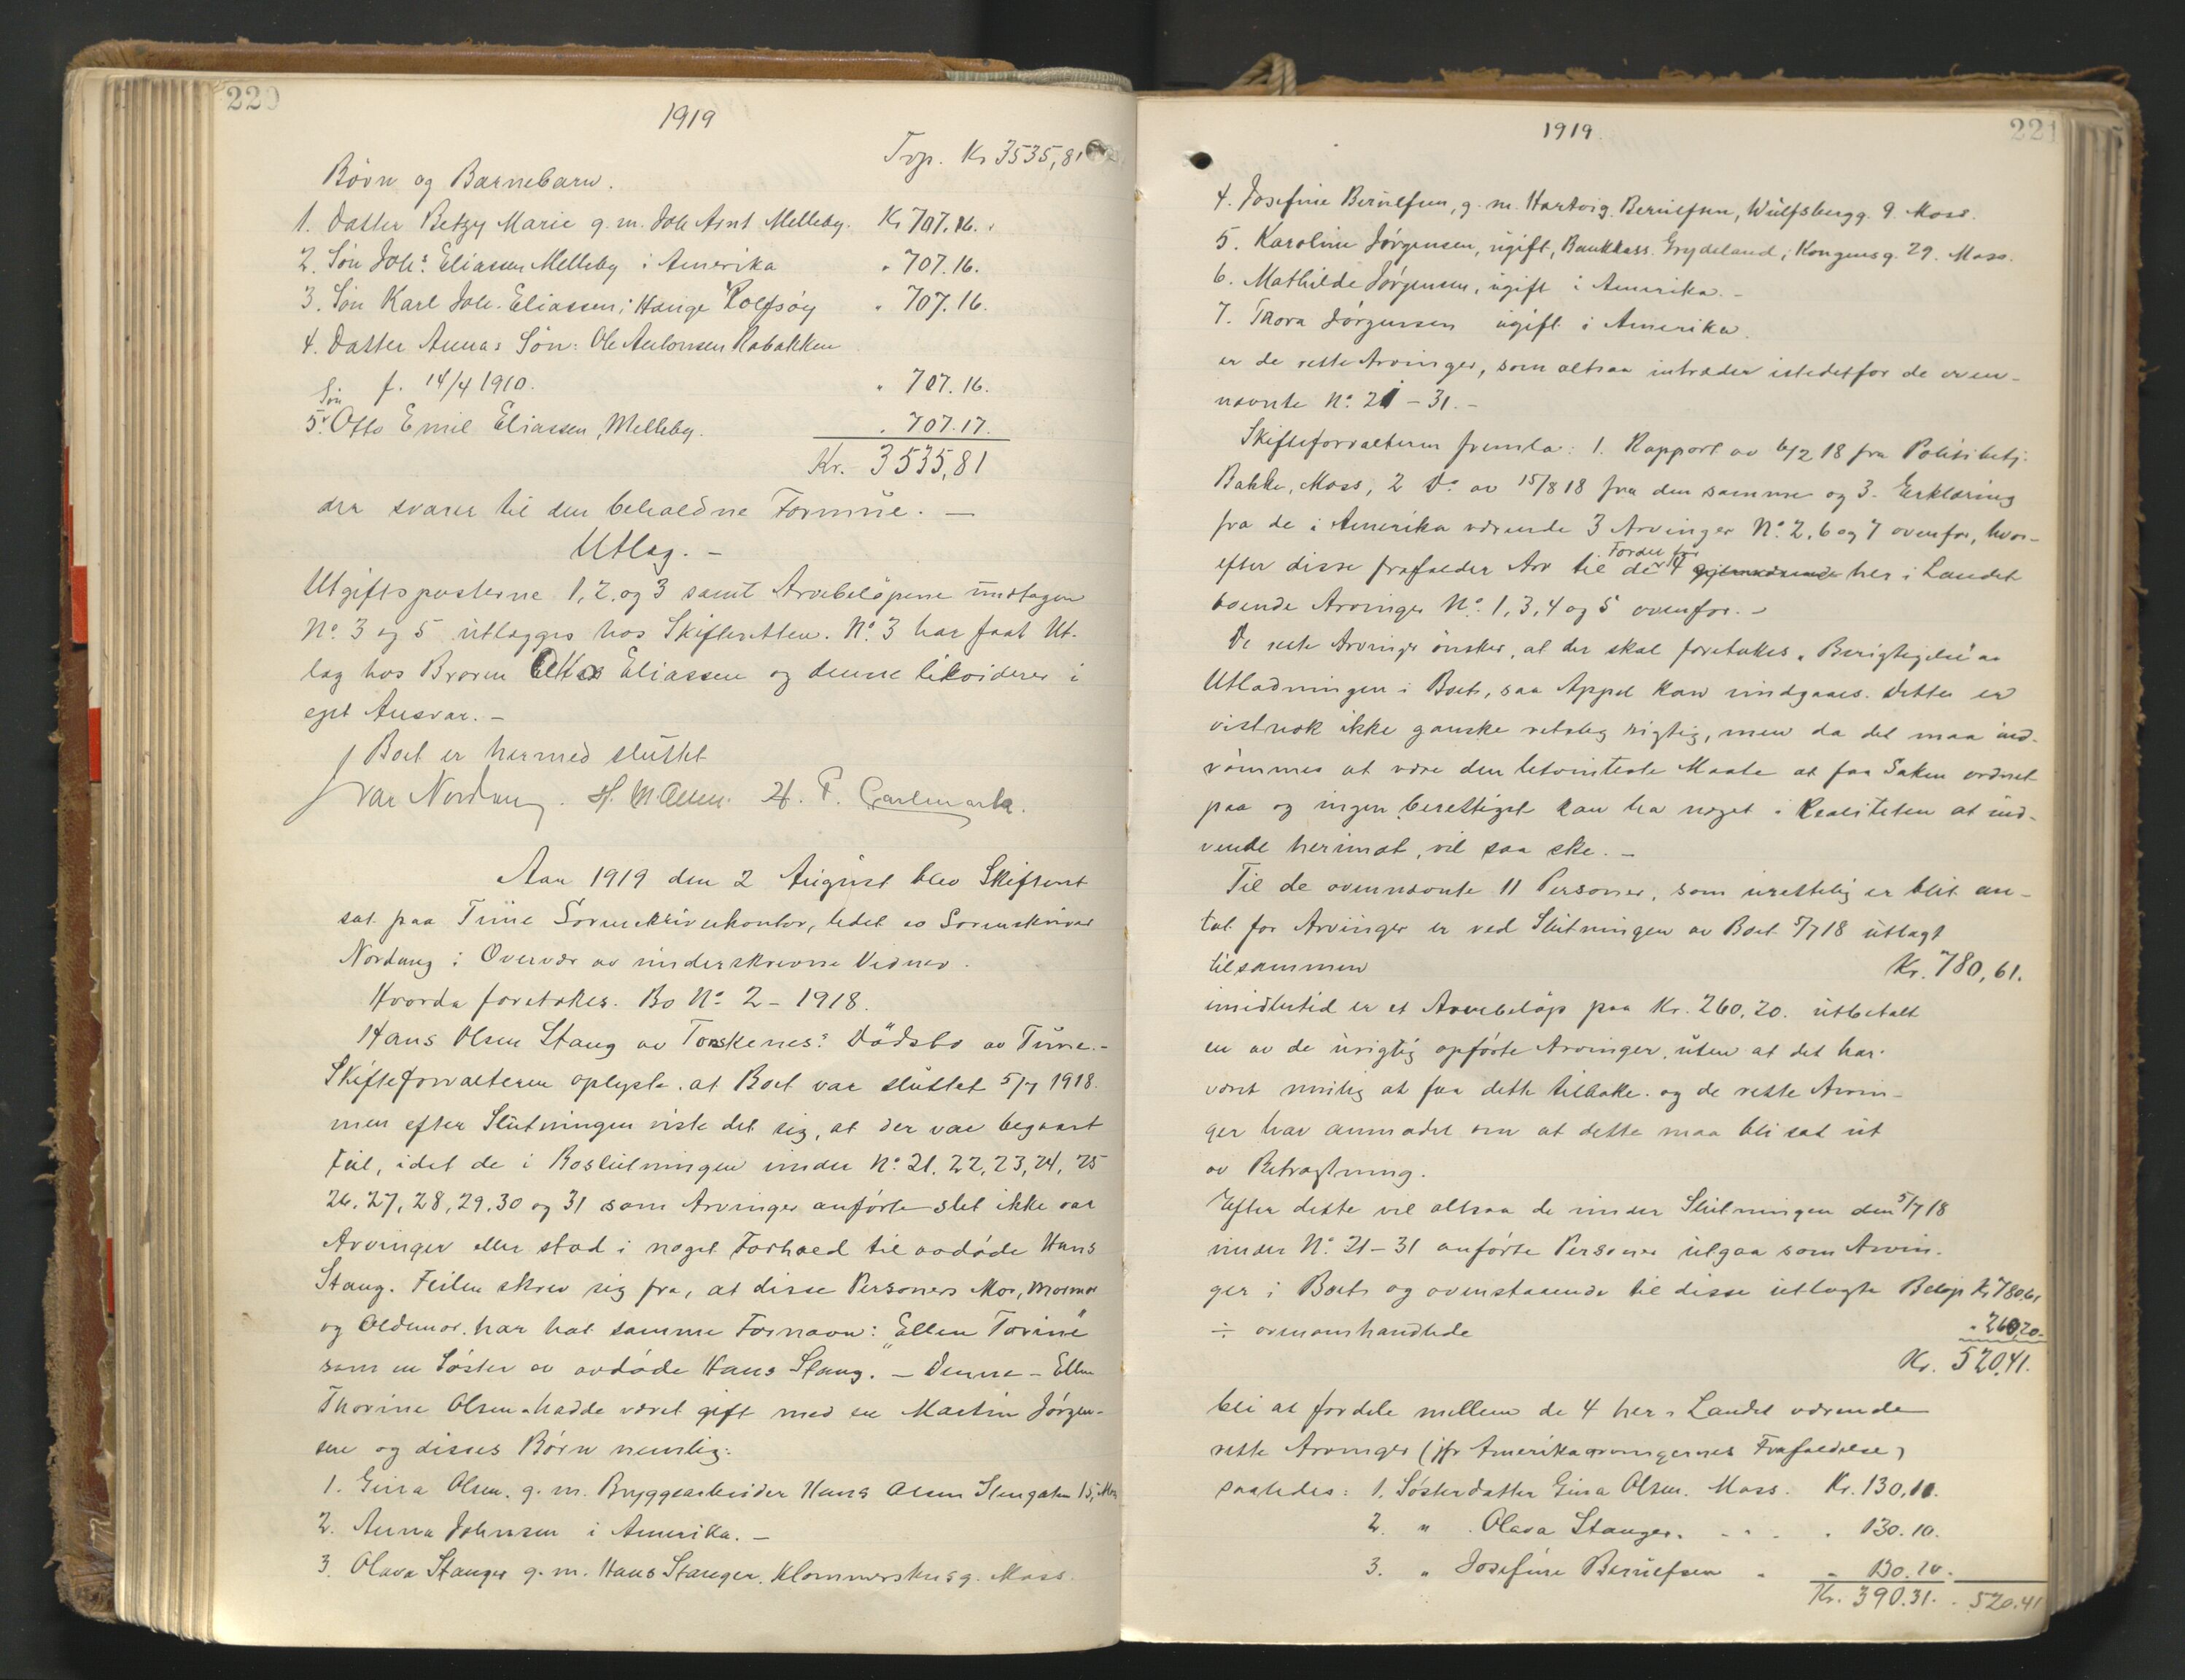 220
1919
Trp. Kr 3535,81
Børn og Barnebarn.
1. Datter Betzy Marie g. m. Joh Arnt Melleby. Kr 707.16.
2. Søn Johs. Eliassen Melleby i Amerika " 707.16.
3. Søn Karl Joh. Eliassen, Hauge Rolfsøy " 707.16.
4. Datter Annas Søn: Ole Antonsen Rabakken
f. 14/4 1910. " 707.16.
5. Søn Otto Emil Eliassen, Melleby. " 707.17.
Kr. 3535,81
der svarer til den beholdne Formue. —
Utlæg. —
Utgiftsposterne 1, 2, og 3 samt Arvebeløpene undtagen
No. 3 og 5 utlægges hos Skifteretten. No. 3 har faat Ut-
læg hos Broren Otto Eliassen og denne likviderer i
eget Ansvar. —
Boet er hermed sluttet
Ivar Nordang. H. F. Carlmark.
Aar 1919 den 2 August blev Skifteret
sat paa Tune Sorenskriverkontor, ledet av Sorenskriver
Nordang i Overvær av underskrevne Vidner.
Hvorda foretokes. Bo No. 2 - 1918.
Hans Olsen Stang av Torskenes: Dødsbo av Tune. -
Skifteforvalteren oplyste. at Boet var sluttet 5/7 1918.
men efter Slutningen viste det sig, at der var begaaet
Feil, idet de i Boslutningen under No. 21, 22, 23, 24, 25
26, 27, 28, 29, 30 og 31 som Arvinger anførte slet ikke var
Arvinger eller stod i noget Forhold til avdøde Hans
Stang. Feilen skrev sig fra, at disse Personers Mor, Mormor
og Oldemor. har hat samme Fornavn: "Ellen Torine"
som en Søster av avdøde Hans Stang. — Denne — Ellen
Thorine Olsen - hadde været gift med en Martin Jørgen-
sen og disses Børn nemlig:
1. Gina Olsen. g. m. Bryggearbeider Hans Olsen Stengaten 15, Moss
2. Anna Johnsen i Amerika. —
3. Olava Stanger g. m. Hans Stanger, Moss.
221
1919.
4. Josefine Berulfsen, g. m. Hartvig Berulfsen, Wulfsbergg. 9. Moss.
5. Karoline Jørgensen, ugift, Bankkass. Grydeland, Kongensg. 29. Moss.
6. Mathilde Jørgensen, ugift i Amerika. -
7. Thora Jørgensen ugift i Amerika.
er de rette Arvinger, som altsaa intræder istedetfor de oven-
nævnte No. 21 - 31. -
Skifteforvalteren fremla: 1. Rapport av 6/2 18 fra Politibetj.
Bakke, Moss, 2 Do. av 15/8 18 fra den samme og 3. Erklæring
fra de i Amerika værende 3 Arvinger No. 2, 6 og 7 ovenfor, hvor-
efter disse frafalder Arv til Fordel for de 4 her i Landet
boende Arvinger No. 1, 3, 4 og 5 ovenfor. -
De rette Arvinger ønsker, at der skal foretakes "Berigtigelse" av
Utlodningen i Boet, saa Appel kan undgaaes. Dette er
vistnok ikke ganske retslig rigtig, men da det maa ind-
rømmes at være den letvinteste Maate at faa Saken ordnet
paa og ingen berettiget kan ha noget i Realiteten at ind-
vende herimot, vil saa ske. -
Til de ovennævnte 11 Personer, som urettelig er blit an-
tat for Arvinger er ved Slutningen av Boet 5/7 18 utlagt
tilsammen Kr. 780,61.
imidlertid er et Arvebeløp paa Kr. 260,20. utbetalt
en av de urigtig opførte Arvinger, uten at det har
været mulig at faa dette tilbake. og de rette Arvin-
ger har anmodet om at dette maa bli sat ut
av Betragtning.
Efter dette vil altsaa de under Slutningen den 5/7 18
under No. 21-31 anførte Personer utgaa som Arvin-
ger i Boet og ovenstaaende til disse utlagte Beløp Kr 780.61
÷ ovenomhandlede " 260,20.
Kr. 520.41.
bli at fordele mellem de 4 her i Landet værende
rette Arvinger (jfr Amerikaarvingernes Frafaldelse)
saaledes: 1. Søsterdatter Gina Olsen. Moss. Kr. 130,10.
2. " Olava Stanger. " " 130.10.
3. " Josefine Berulfsen " " 130.10.
Kr. 390.31. - 520.41